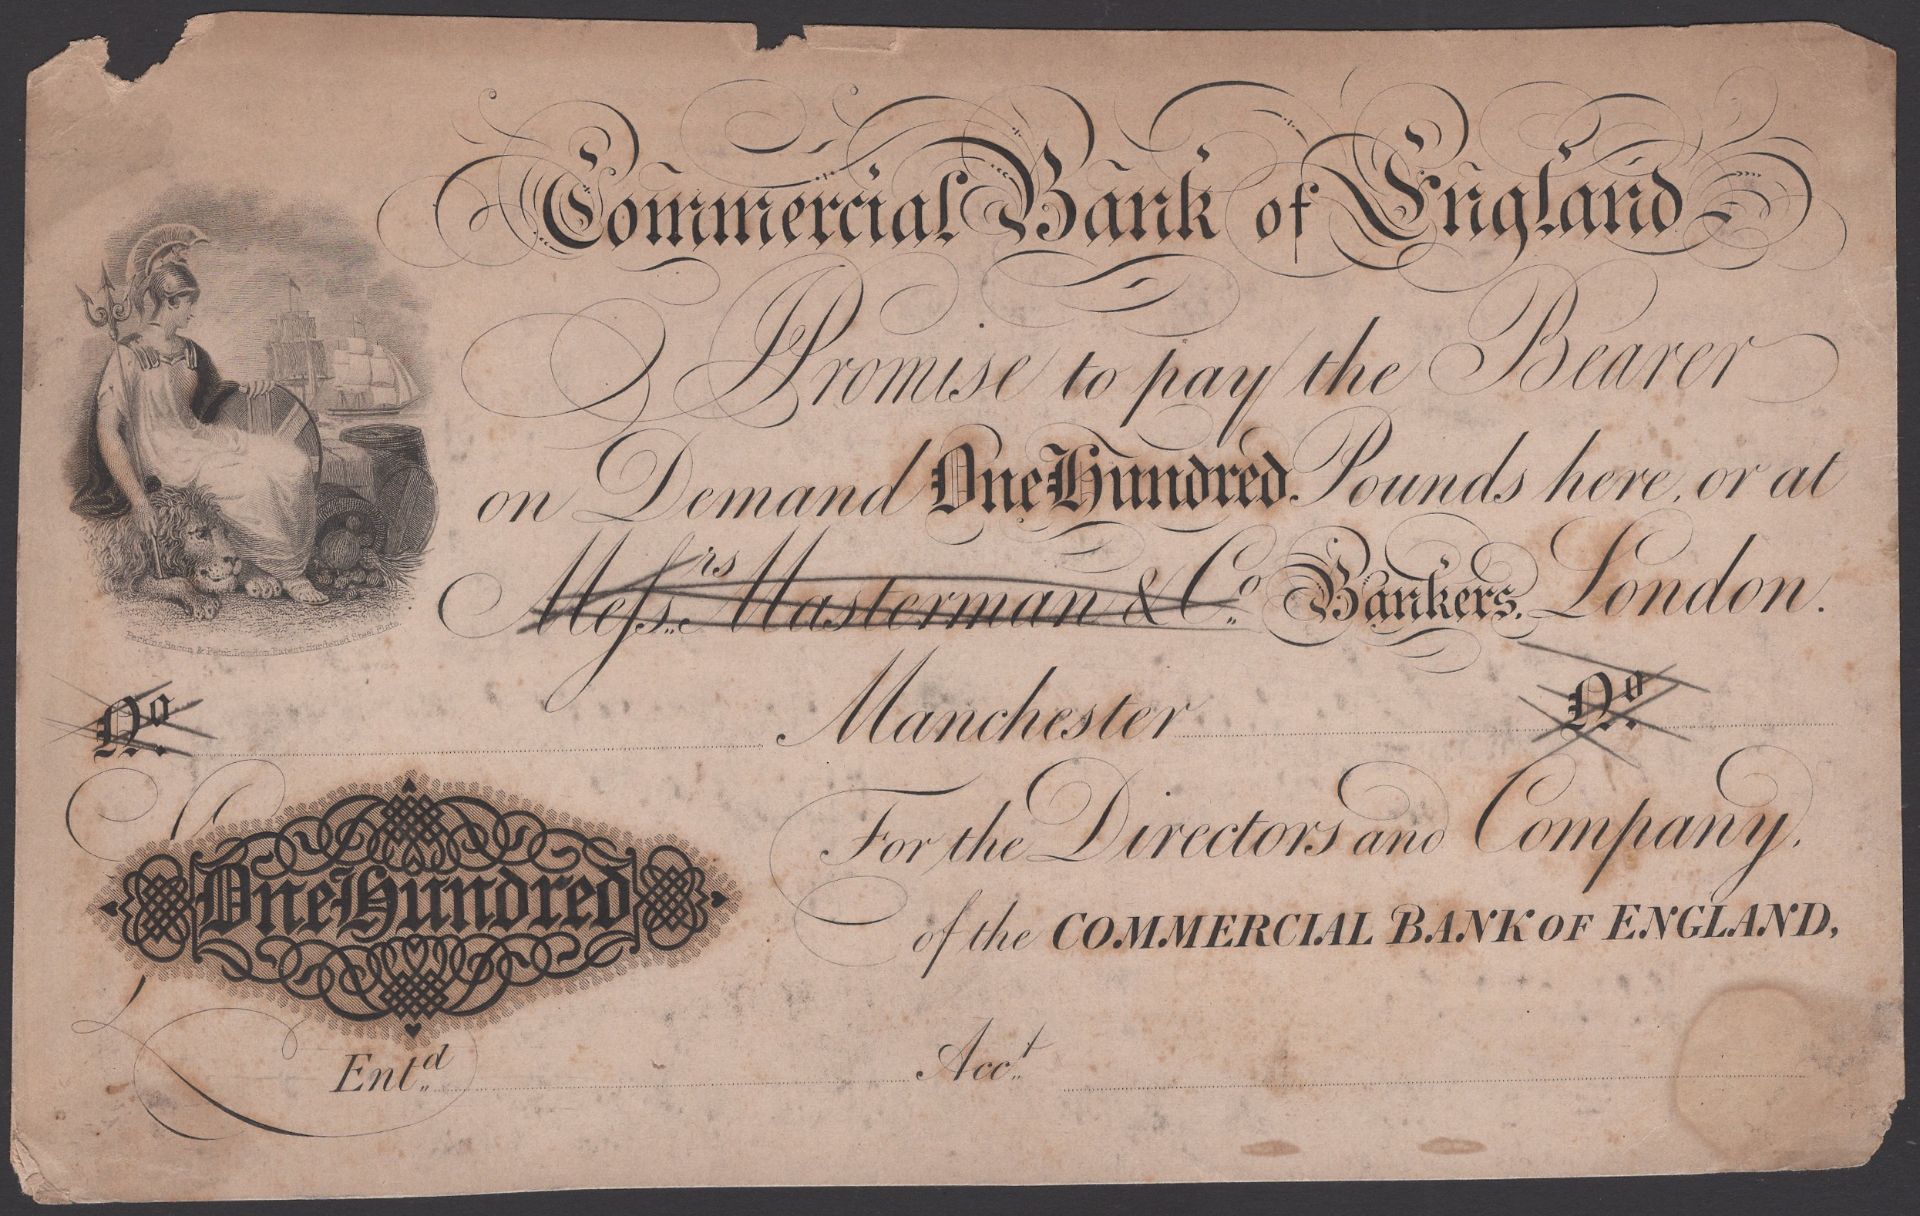 Commercial Bank of England
Promise to pay the Bearer
on Demand One Hundred Pounds here, or at
Messrs. Masterman & Co. Bankers, London.
Perkins, Bacon & Petch, London, Patent Hardened Steel Plate.
No. Manchester No.
For the Directors and Company,
One Hundred
of the COMMERCIAL BANK OF ENGLAND,
£
Entd. Acct.